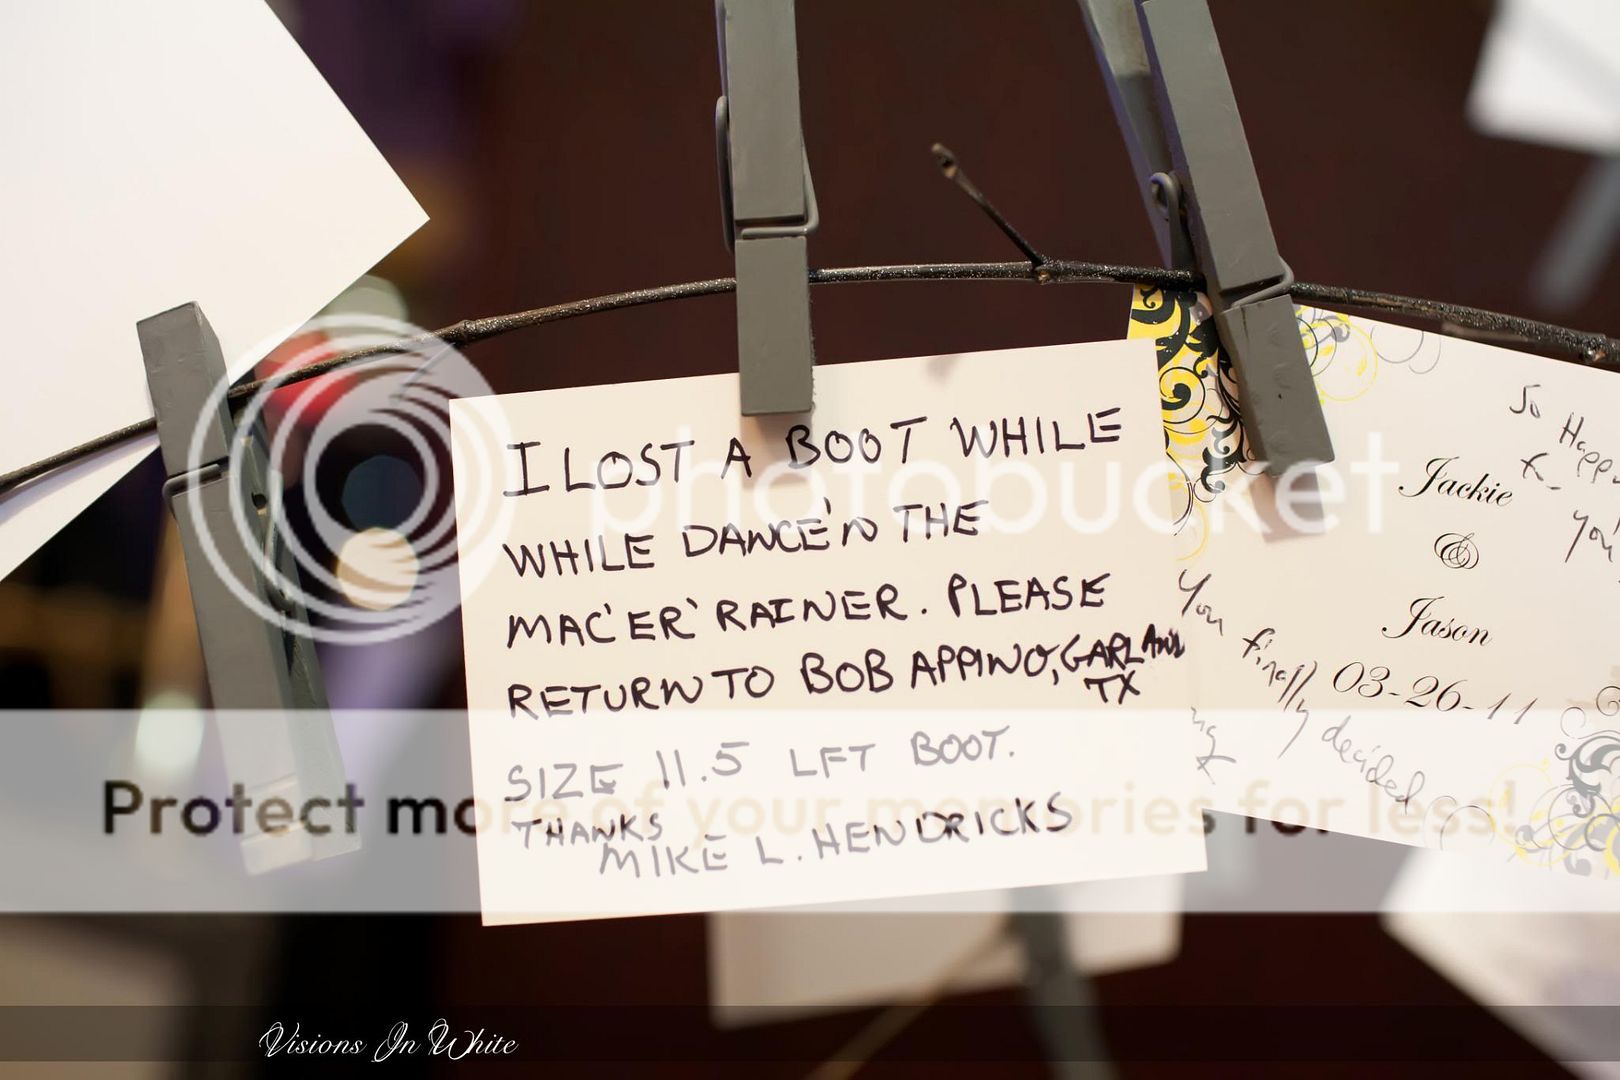 I LOST A BOOT WHILE
WHILE DANCE'N THE
MAC'ER' RAINER. PLEASE
RETURN TO BOB APPINO, GARLAND
TX
SIZE 11.5 LFT BOOT.
THANKS
MIKE L. HENDRICKS
Jackie
&
Jason
03-26-11
You finally decided
photobucket
Protect more of your memories for less!
Visions In White